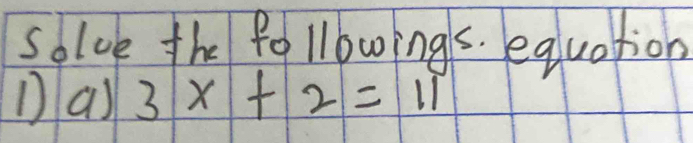 Solve the followings. equation
1) a) 3 x + 2 = 11